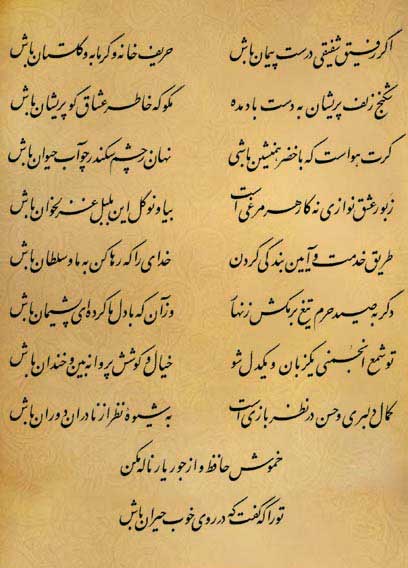 اگر رفیق شفیقی درست پیمان باش
حریف خانه و گرمابه و گلستان باش
شکنج زلف پریشان به دست باد مده
مگو که خاطر عشاق گو پریشان باش
گرت هواست که با خضر همنشین باشی
نهان ز چشم سکندر چو آب حیوان باش
زبور عشق نوازی نه کار هر مرغی است
بیا و نوگل این بلبل غزلخوان باش
طریق خدمت و آیین بندگی کردن
خدای را که رها کن به ما و سلطان باش
دگر به صید حرم تیغ بر مکش زنهار
وز آن که با دل ما کرده‌ای پشیمان باش
تو شمع انجمنی یکزبان و یکدل شو
خیال و کوشش پروانه بین و خندان باش
کمال دلبری و حسن در نظربازی است
به شیوهٔ نظر از نادران دوران باش
خموش حافظ و از جور یار ناله مکن
تو را که گفت که در روی خوب حیران باش